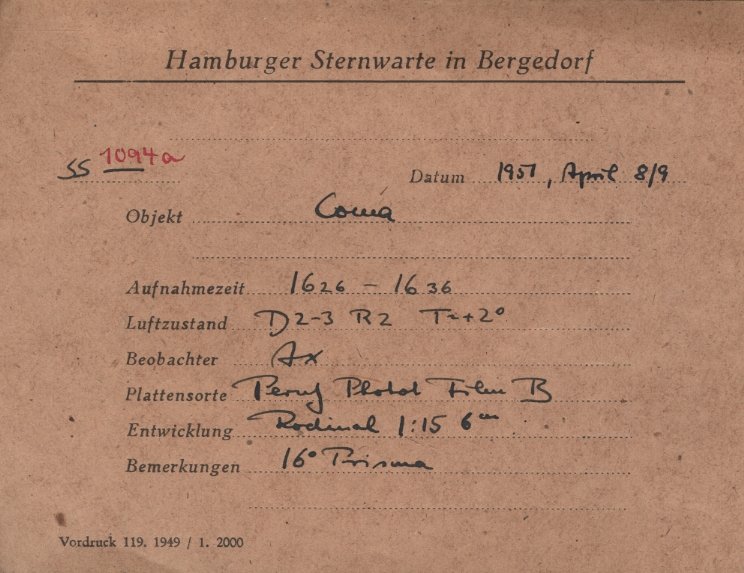 Hamburger Sternwarte in Bergedorf
SS 1094a
Datum 1951, April 8/9
Objekt Coma
Aufnahmezeit 16 26 – 16 36
Luftzustand D2-3 R2 T=+2°
Beobachter Ax
Plattensorte Film B
Entwicklung Rodinal 1:15 6m
Bemerkungen 16° Prisma
Vordruck 119. 1949 / 1. 2000